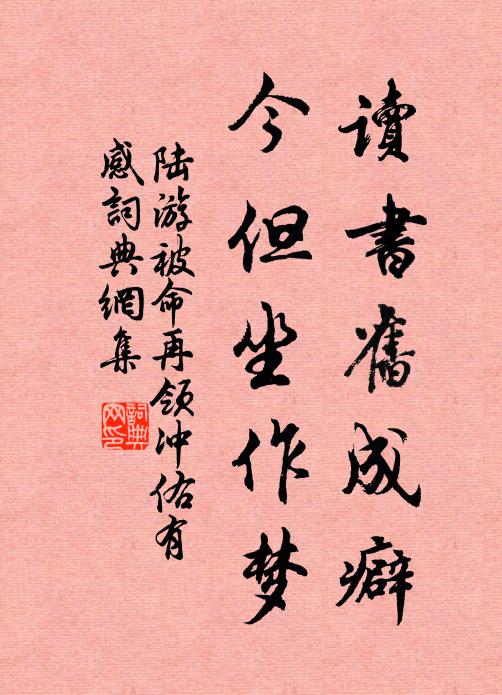 讀書舊成癖
今但坐作梦
陆游被命再领冲佑有
感詞典網集
詞典网印